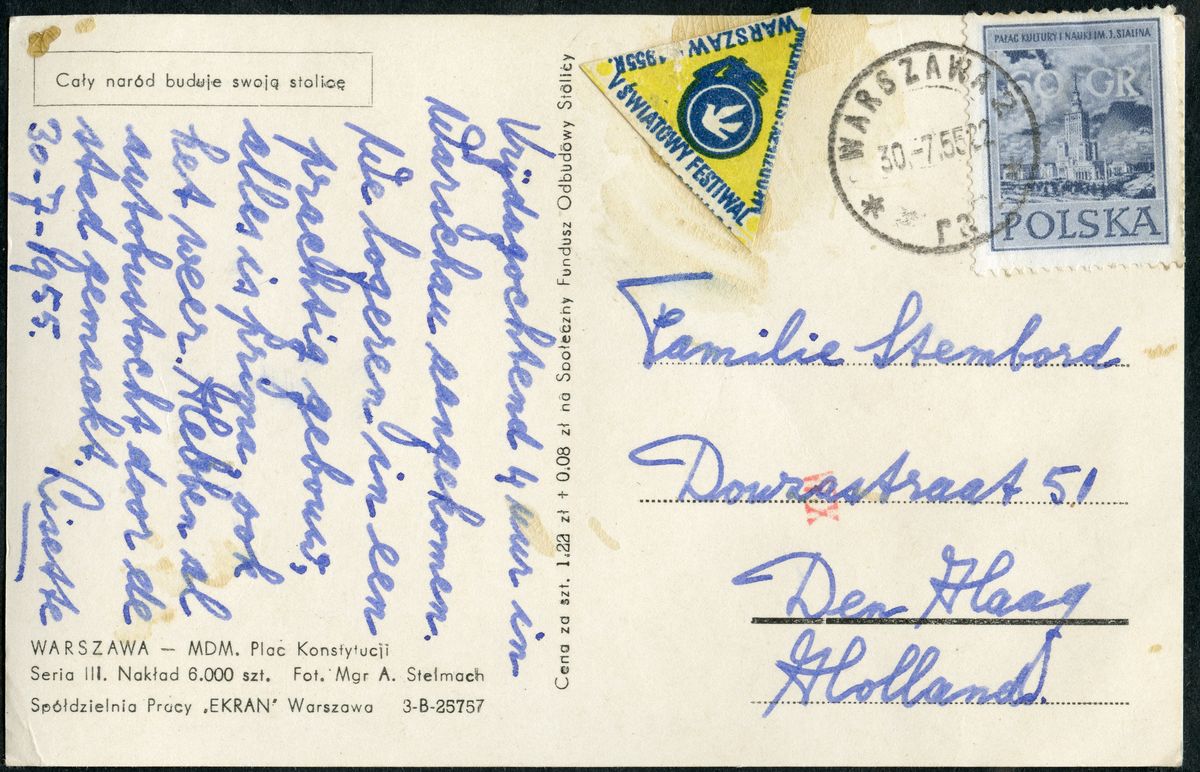 Cały naród buduje swoją stolicę
Vrijdagochtend 4 uur in
Warschau aangekomen.
We logeren in een
prachtig gebouw,
alles is prima ook
het weer. Hebben al
autobustocht door de
stad gemaakt. Lisette
30-7-1955.
WARSZAWA — MDM. Plac Konstytucji
Seria III. Nakład 6.000 szt. Fot. Mgr A. Stelmach
Spółdzielnia Pracy „EKRAN" Warszawa 3-B-25757
Cena za szt. 1.22 zł + 0.08 zł na Społeczny Fundusz Odbudowy Stolicy
V ŚWIATOWY FESTIWAL
MŁODZIEŻY I STUDENTÓW
WARSZAWA 1955R.
WARSZAWA 2
30.-7.55.22
PAŁAC KULTURY I NAUKI IM. J. STALINA
60 GR
POLSKA
Familie Stembord
Douzastraat 51
Den Haag
Holland.